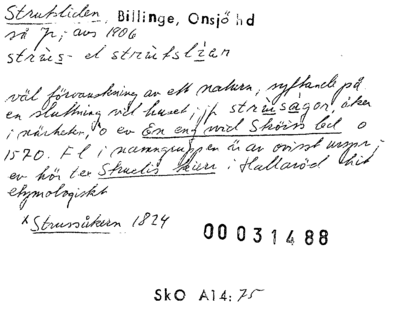 Strutsliden, Billinge, Onsjö hd
så jr; avs 1906
strùs- el strùtslían
väl förvanskning av ett naturn, syftande på
en sluttning vid huset, jf strùságor, åker
i närheten, o ev En eng wid Sköiss led o
1570. F l i namngruppen är av ovisst urspr;
ev hör ter Struetis kierr i Hallaröd hit
etymologiskt
*Strussåkern 1824
00031488
SkO A14:75